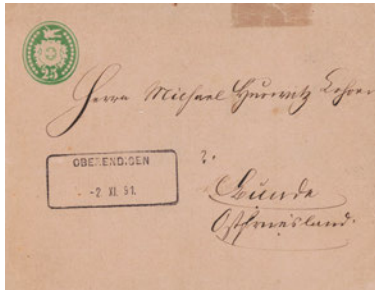 25
Herrn Michael Hurwitz Lehrer
OBERENDIGEN
-2. XI. 91.
z.
Bunde
Ostfriesland.